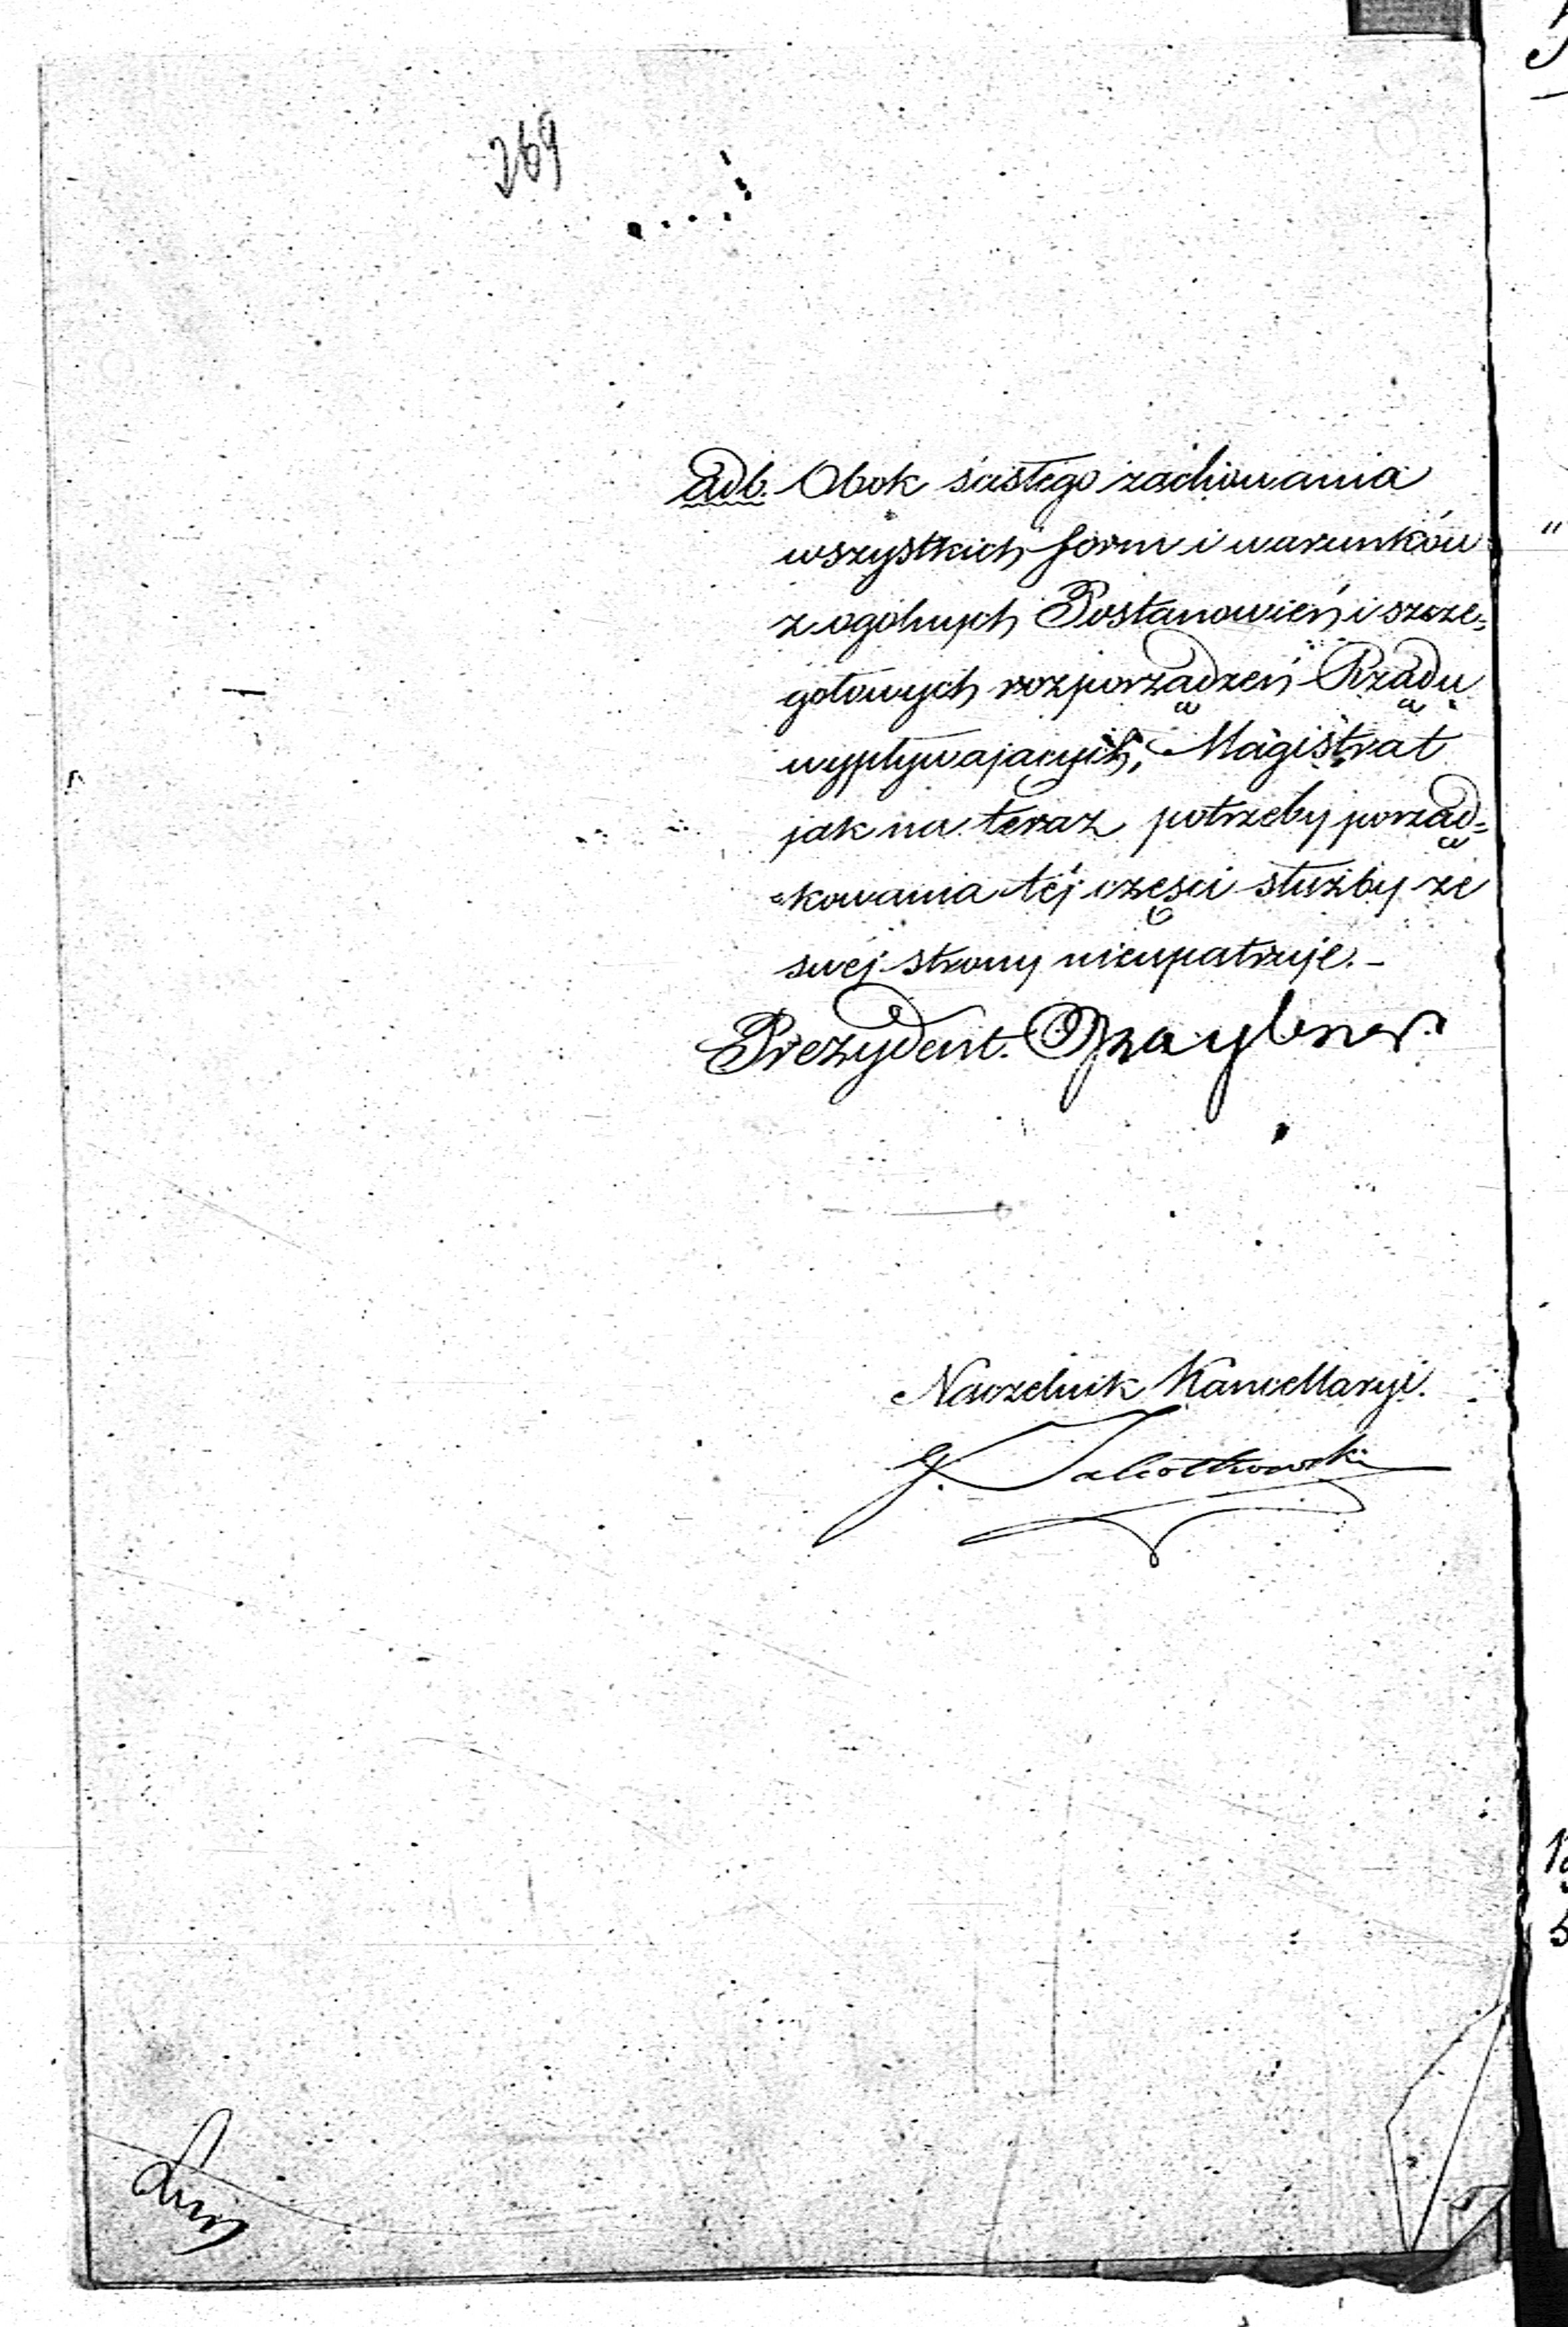 269
adb. Obok ścisłego zachowania
wszystkich form i warunków
z ogólnych Postanowień i szcze=
gółowych rozporządzeń Rządu
wypływających, Magistrat
jak na teraz potrzeby porząd=
=kowania téj części służby ze
swéj strony nieupatruje.-
Prezydent.
Naczelnik Kancellaryi.